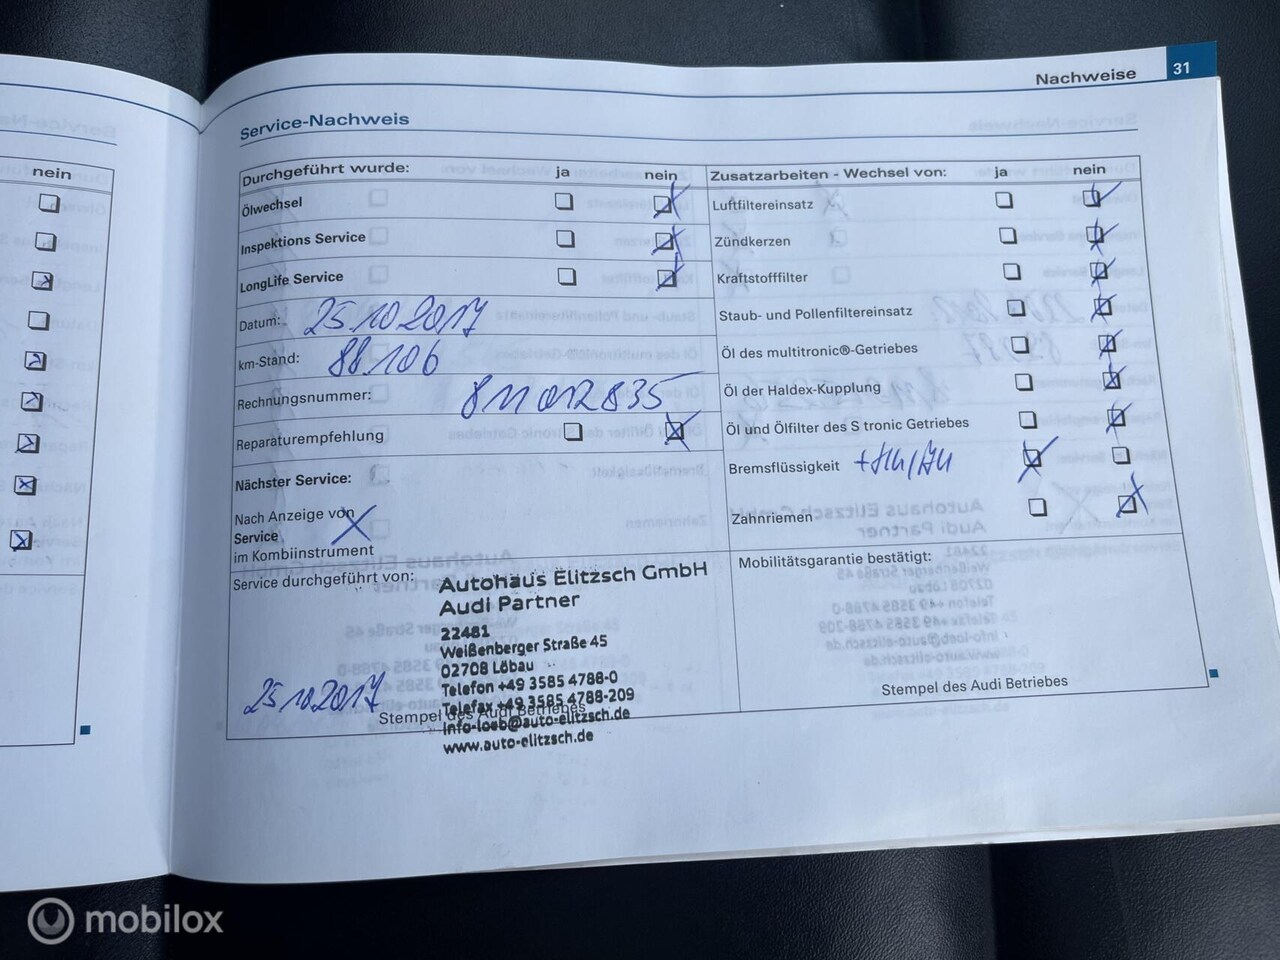 Nachweise 31
Service-Nachweis
nein
Durchgeführt wurde: ja nein
Ölwechsel
Inspektions Service
LongLife Service
Datum: 25.10.2017
km-Stand: 88106
Rechnungsnummer: 811012835
Reparaturempfehlung
Nächster Service:
Nach Anzeige von
Service
im Kombiinstrument
Service durchgeführt von:
Autohaus Elitzsch GmbH
Audi Partner
22481
Weißenberger Straße 45
02708 Löbau
Telefon +49 3585 4788-0
Telefax +49 3585 4788-209
info-loeb@auto-elitzsch.de
www.auto-elitzsch.de
25.10.2017
Stempel des Audi Betriebes
Zusatzarbeiten - Wechsel von: ja nein
Luftfiltereinsatz
Zündkerzen
Kraftstofffilter
Staub- und Pollenfiltereinsatz
Öl des multitronic®-Getriebes
Öl der Haldex-Kupplung
Öl und Ölfilter des S tronic Getriebes
Bremsflüssigkeit
Zahnriemen
Mobilitätsgarantie bestätigt:
Stempel des Audi Betriebes
mobilox